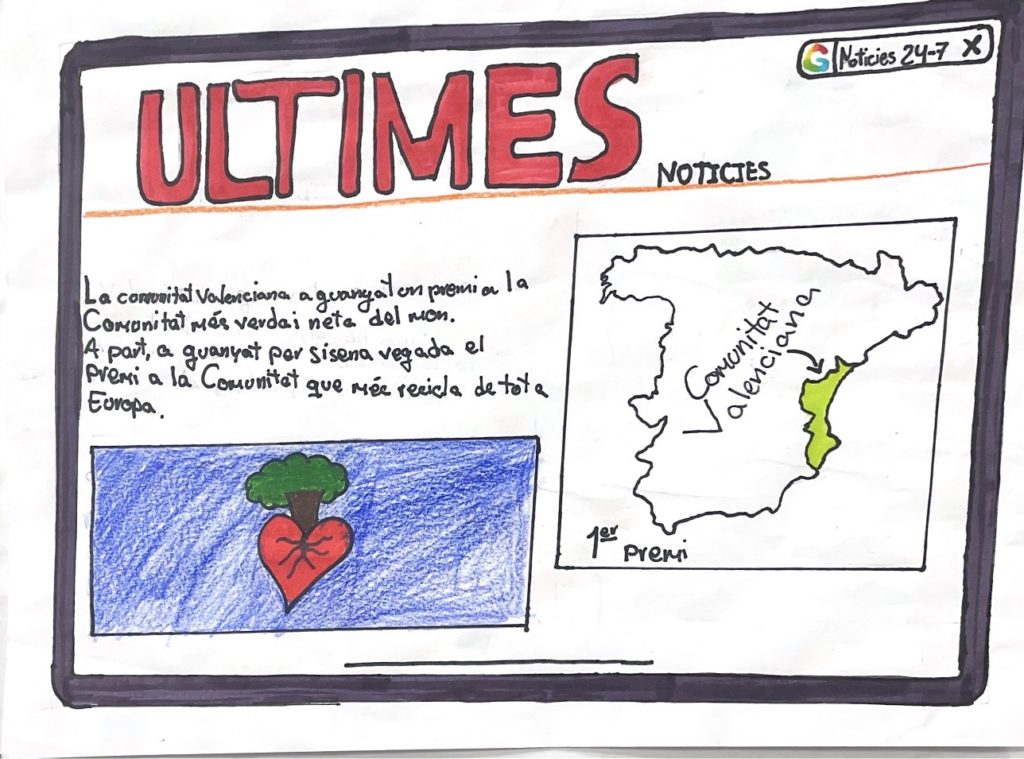 G Noticies 24-7 X
ULTIMES
NOTICIES
La comunitat Valenciana a guanyat un premi a la
Comunitat més verda i neta del mon.
A part, a guanyat per sisena vegada el
Premi a la Comunitat que més recicla de tot a
Europa.
Comunitat
Valenciana
1er Premi